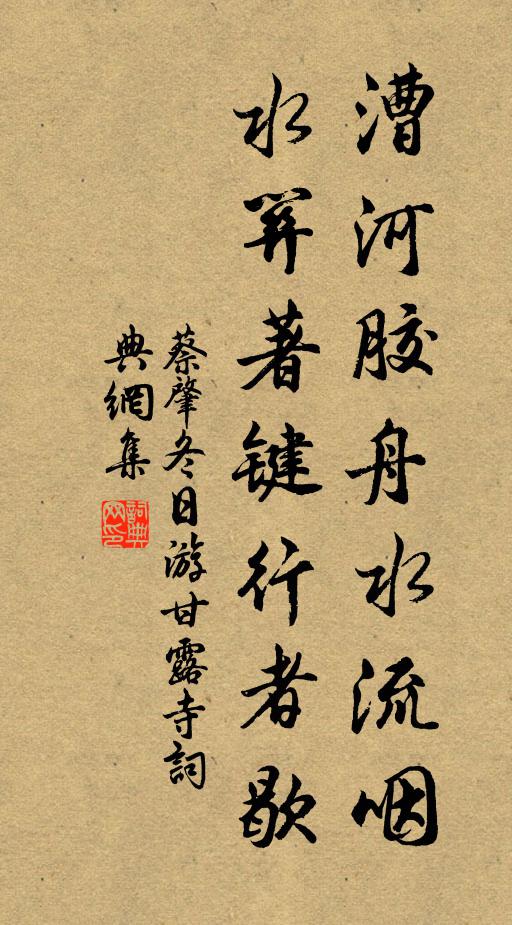 漕河胶舟水流咽
水關著鍵行者歇
蔡肇冬日游甘露寺詞
典網集
詞典
网印